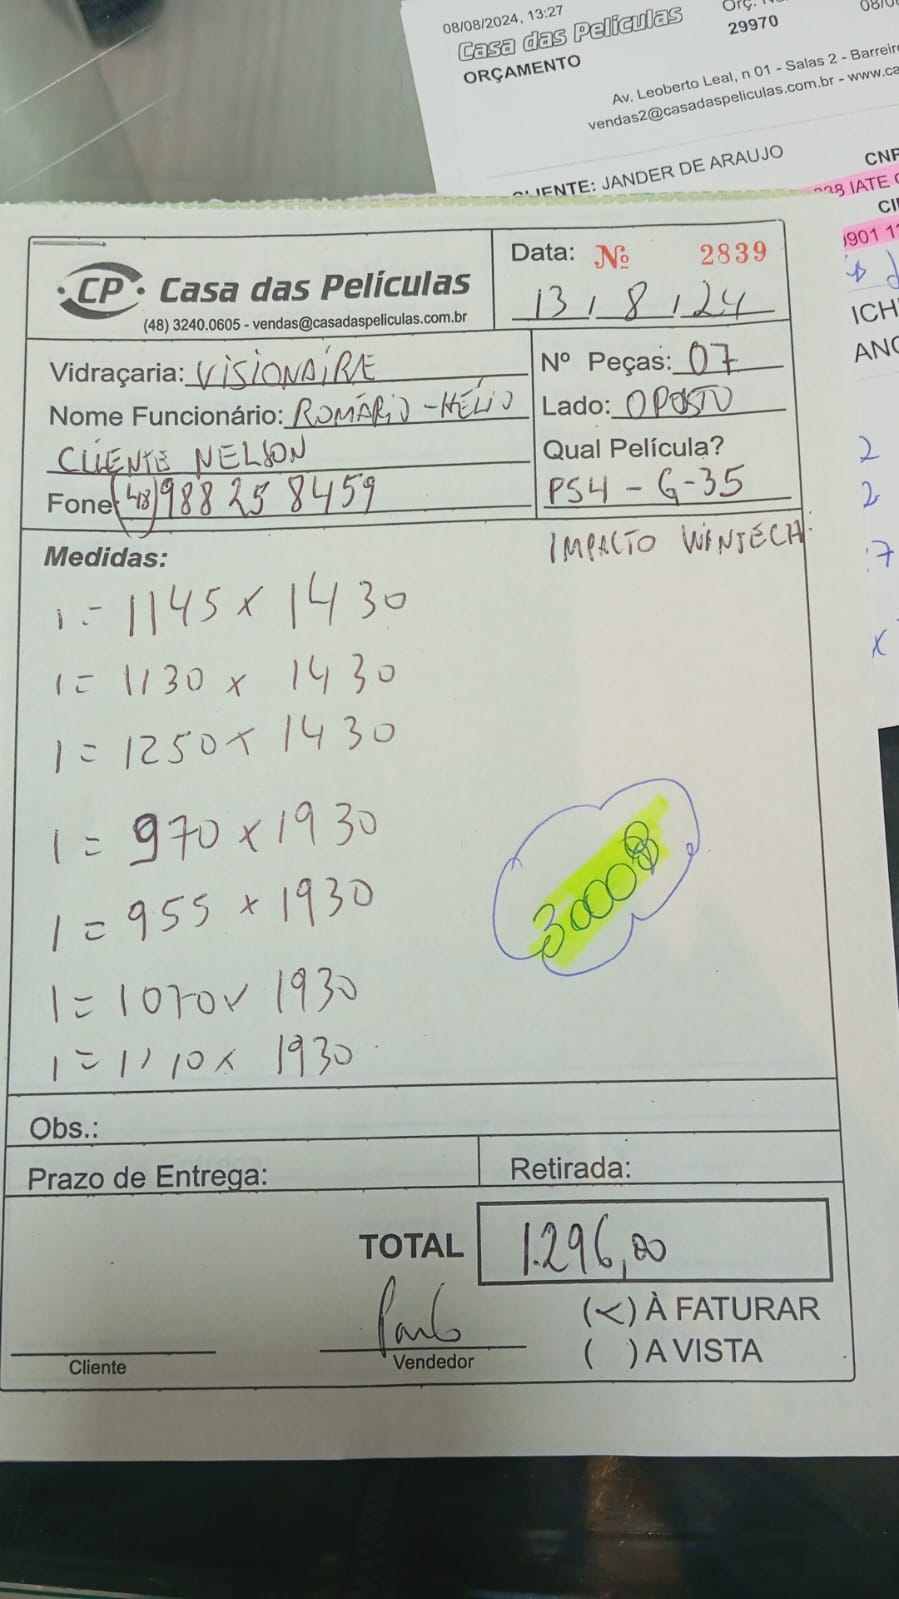 08/08/2024, 13:27
Casa das Películas
29970
ORÇAMENTO
Av. Leoberto Leal, n 01 - Salas 2 - Barreir
vendas2@casadaspeliculas.com.br - www.ca
CLIENTE: JANDER DE ARAUJO
IATE
901 1
CP Casa das Películas
(48) 3240.0605 - vendas@casadaspeliculas.com.br
Data: Nº 2839
13 / 8 / 24
Vidraçaria: VISIONAIRE
Nome Funcionário: ROMÁRIO - HÉLIO
CLIENTE NELSON
Fone: (48) 988 25 8459
Nº Peças: 07
Lado: OPOSTO
Qual Película?
PS4 - G-35
IMPACTO WINTECH
Medidas:
1 = 1145 x 1430
1 = 1130 x 1430
1 = 1250 x 1430
1 = 970 x 1930
1 = 955 x 1930
1 = 1070 x 1930
1 = 1110 x 1930
30008
Obs.:
Prazo de Entrega:
Retirada:
TOTAL 1.296,00
Paulo
(x) À FATURAR
( ) A VISTA
Cliente
Vendedor